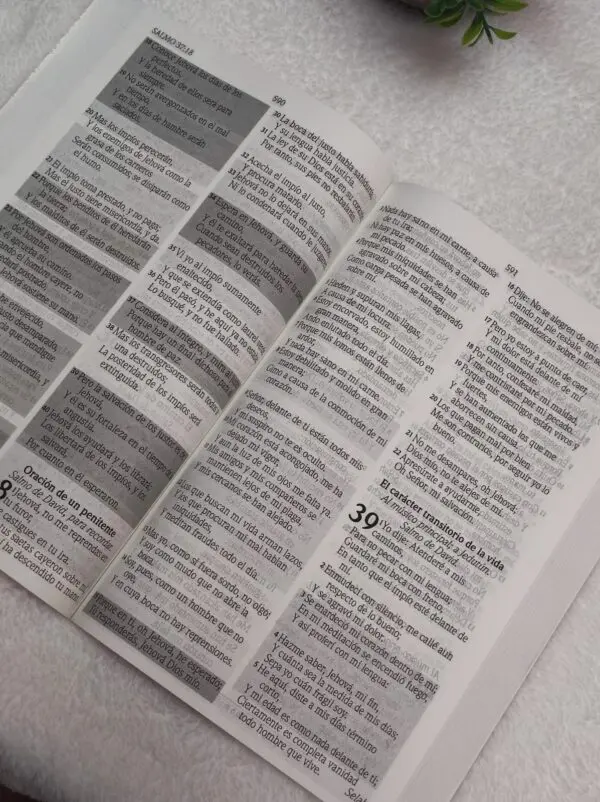 SALMO 37.18
590
18 Conoce Jehová los días de los
perfectos,
Y la heredad de ellos será para
siempre.
19 No serán avergonzados en el mal
tiempo,
Y en los días de hambre serán
saciados.
20 Mas los impíos perecerán,
Y los enemigos de Jehová como la
grasa de los carneros
Serán consumidos; se disiparán como
el humo.
21 El impío toma prestado, y no paga;
Mas el justo tiene misericordia, y da.
22 Porque los benditos de él heredarán
la tierra;
Y los malditos de él serán destruidos.
son ordenados los pasos
del hombre,
Y él aprueba su camino.
el hombre cayere, no
quedará postrado,
sostiene su mano.
he envejecido,
justo desamparado,
que mendigue
misericordia, y
30 La boca del justo habla sabiduría,
Y su lengua habla justicia.
31 La ley de su Dios está en su corazón;
Por tanto, sus pies no resbalarán.
32 Acecha el impío al justo,
Y procura matarlo.
33 Jehová no lo dejará en sus manos,
Ni lo condenará cuando le
34 Espera en Jehová, y guarda su
camino,
Y él te exaltará para heredar la
Cuando sean destruidos los
pecadores, lo verás.
35 Vi yo al impío sumamente
enaltecido,
Y que se extendía como laurel
36 Pero él pasó, y he aquí ya no
Lo busqué, y no fue hallado.
37 Considera al íntegro, y mira
Porque hay un final dichoso para
hombre de paz.
38 Mas los transgresores serán todos
una destruidos;
La posteridad de los impíos será
extinguida.
39 Pero la salvación de los justos es
Y él es su fortaleza en el tiempo
angustia.
40 Jehová los ayudará y los librará;
Los libertará de los impíos, y
salvará,
Por cuanto en él esperaron.
Oración de un penitente
Salmo de David, para recordar.
8 Jehová, no me reprendas
furor,
castigues en tu ira.
tus saetas cayeron sobre
ha descendido tu mano
591
Nada hay sano en mi carne, a causa
de tu ira;
Ni hay paz en mis huesos, a causa de
mi pecado.
Porque mis iniquidades se han
agravado sobre mi cabeza;
Como carga pesada se han agravado
sobre mí.
Hieden y supuran mis llagas,
A causa de mi locura.
Estoy encorvado, estoy humillado en
gran manera,
Ando enlutado todo el día.
Porque mis lomos están llenos de
ardor,
Y nada hay sano en mi carne.
Estoy debilitado y molido en gran
manera;
Gimo a causa de la conmoción de mi
corazón.
Señor, delante de ti están todos mis
deseos,
Y mi suspiro no te es oculto.
Mi corazón está acongojado, me ha
dejado mi vigor,
Y aun la luz de mis ojos me falta ya.
Mis amigos y mis compañeros se
mantienen lejos de mi plaga,
Y mis cercanos se han alejado.
Los que buscan mi vida arman lazos,
Y los que procuran mi mal hablan
iniquidades,
Y meditan fraudes todo el día.
Mas yo, como si fuera sordo, no oigo;
Y soy como mudo que no abre la
boca.
Soy, pues, como un hombre que no
oye,
Y en cuya boca no hay reprensiones.
Porque en ti, oh Jehová, he esperado;
Tú responderás, Jehová Dios mío.
16 Dije: No se alegren de mí;
Cuando mi pie resbale, no se
engrandezcan sobre mí.
17 Pero yo estoy a punto de caer,
Y mi dolor está delante de mí
18 Por tanto, confesaré mi maldad,
Y me contristaré por mi pecado.
19 Porque mis enemigos están vivos y
fuertes,
Y se han aumentado los que me
aborrecen sin causa.
20 Los que pagan mal por bien
Me son contrarios, por seguir yo lo
bueno.
21 No me desampares, oh Jehová;
Dios mío, no te alejes de mí.
22 Apresúrate a ayudarme,
Oh Señor, mi salvación.
El carácter transitorio de la vida
Al músico principal; a Jedutún.
Salmo de David.
39 1 Yo dije: Atenderé a mis
caminos,
Para no pecar con mi lengua;
Guardaré mi boca con freno,
En tanto que el impío esté delante de
2 Enmudecí con silencio, me callé aun
respecto de lo bueno;
Y se agravó mi dolor.
3 Se enardeció mi corazón dentro de mí;
En mi meditación se encendió fuego,
Y así proferí con mi lengua:
4 Hazme saber, Jehová, mi fin,
Y cuánta sea la medida de mis días;
Sepa yo cuán frágil soy.
5 He aquí, diste a mis días término
corto,
Y mi edad es como nada delante de ti;
Ciertamente es completa vanidad
todo hombre que vive.
Selah